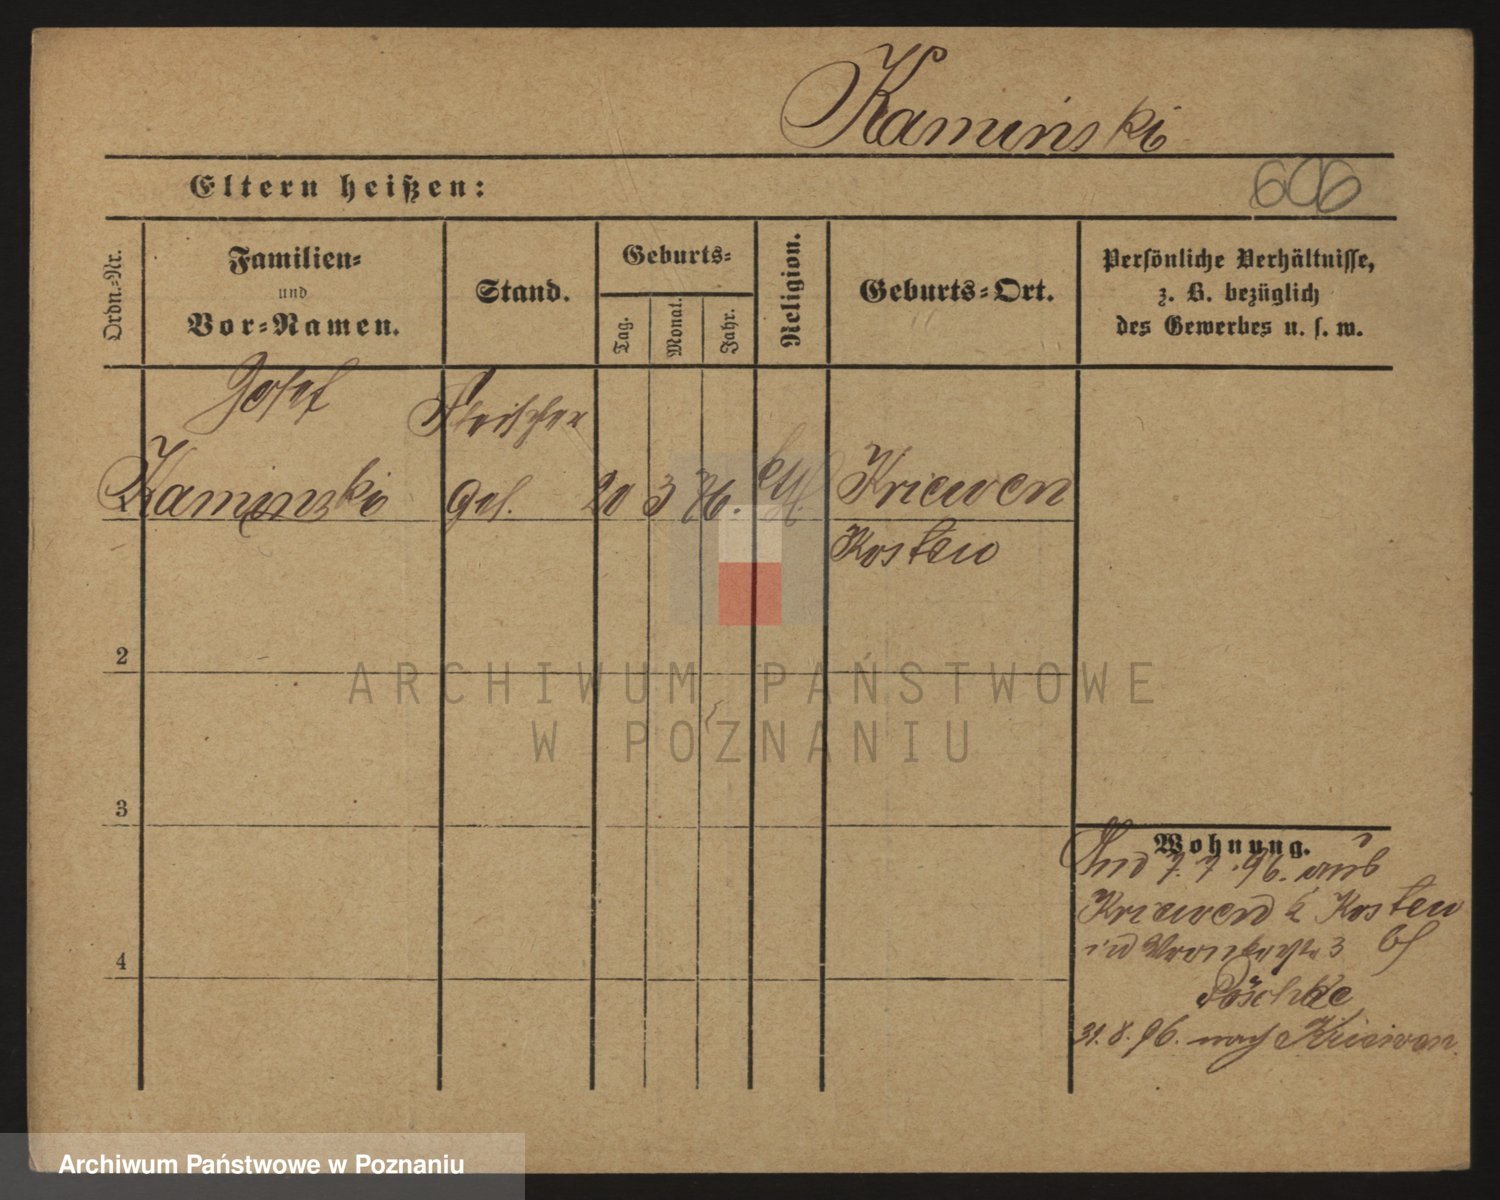 Kamiński
Eltern heißen:
606
Ordn.-Nr.
Familien-
und
Vor-Namen.
Stand.
Geburts-
Tag.
Monat.
Jahr.
Religion.
Geburts-Ort.
Persönliche Verhältnisse,
z. B. bezüglich
des Gewerbes u. s. w.
Josef
Kaminski
Fleischer
Ges.
20 3 76. kth.
Kriewen
Kosten
2
3
4
Wohnung.
7.7.96. aus
Kriewen Kosten
in 3
Pöschke
31.8.96. nach Kriewen
ARCHIWUM PAŃSTWOWE
W POZNANIU
Archiwum Państwowe w Poznaniu